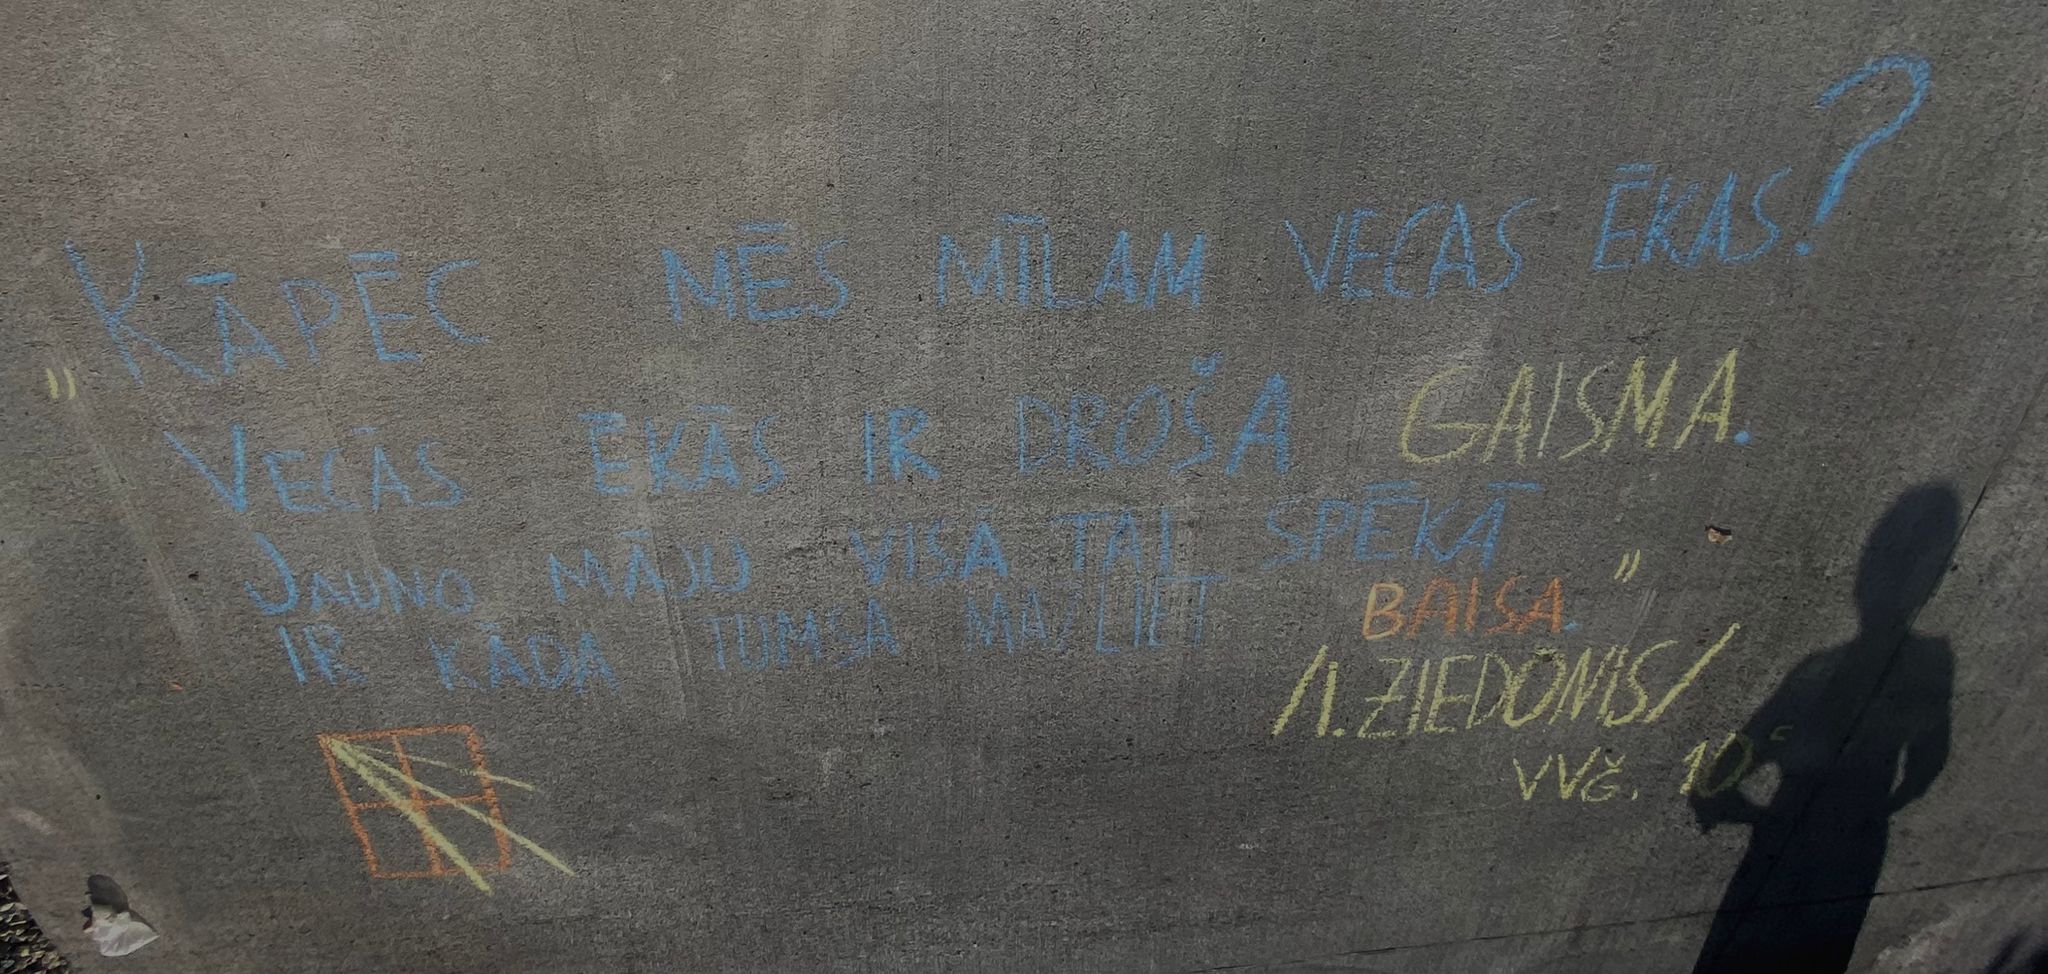 KĀPĒC MĒS MĪLAM VECAS ĒKAS?
" VECĀS ĒKĀS IR DROŠA GAISMA.
JAUNO MĀJU VISĀ TAI SPĒKĀ
IR KĀDA TUMSA MAZLIET BAISA. "
/I. ZIEDONIS/
VVĢ. 10c